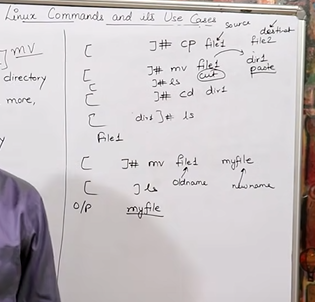 Linux Commands and its Use Cases
] mv
directory
more,
source
destinat
[ ]# cp file1 file2
[ ]# mv file1 dir1
cut paste
[ ]# ls
[ ]# cd dir1
[ dir1 ]# ls
File1
[ ]# mv file1 myfile
oldname newname
[ ] ls
O/P myfile